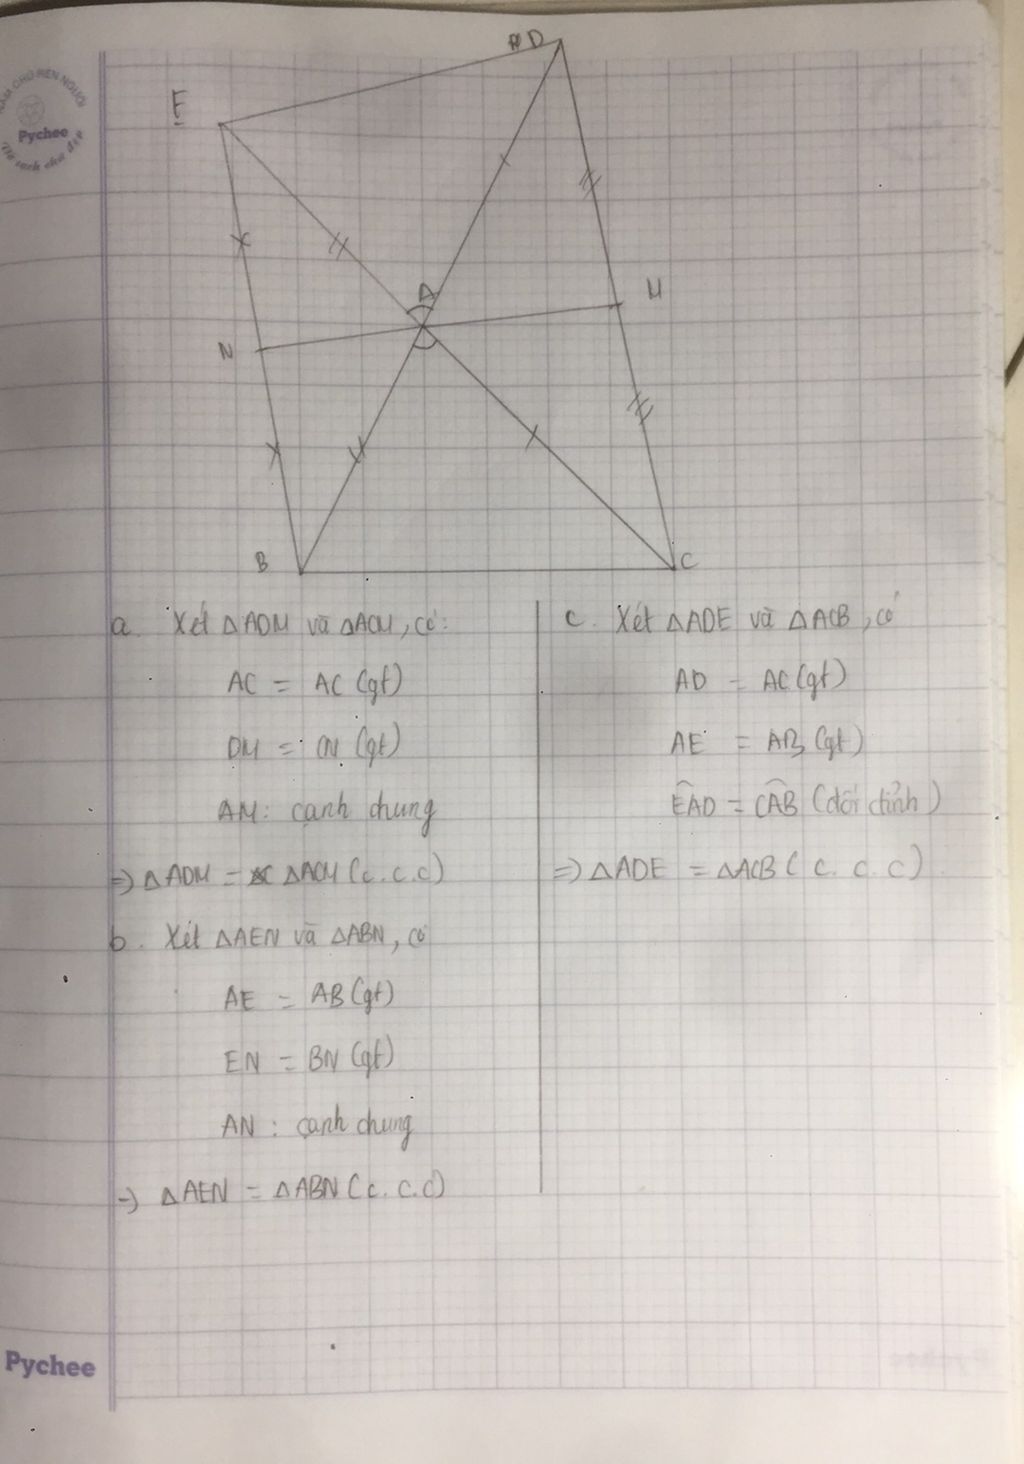 D
E
A
M
N
B
C
a. Xét △ADM và △ACM, có:
AC = AC (gt)
DM = CM (gt)
AM: cạnh chung
=> △ADM = △ACM (c.c.c)
b. Xét △AEN và △ABN, có
AE = AB (gt)
EN = BN (gt)
AN: cạnh chung
=> △AEN = △ABN (c.c.c)
c. Xét △ADE và △ACB, có
AD = AC (gt)
AE = AB (gt)
EAD = CAB (đối đỉnh)
=> △ADE = △ACB (c.c.c)
Pychee
Pychee